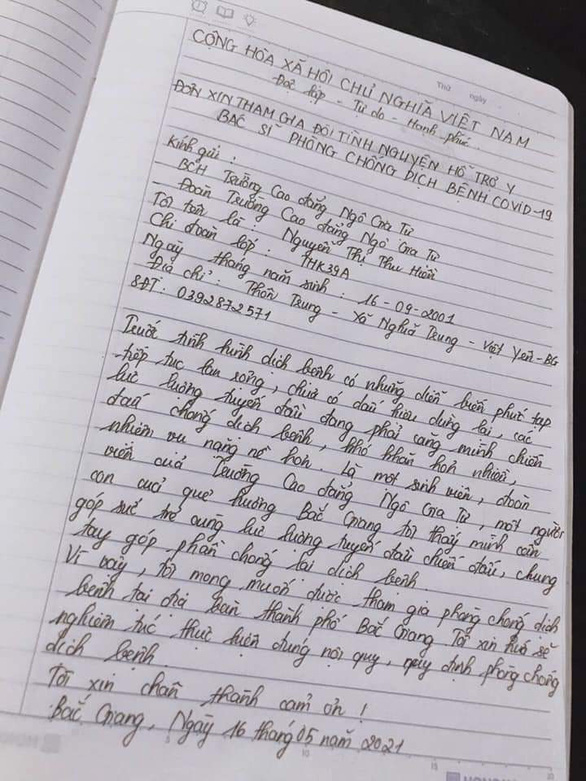 Thứ ngày
CỘNG HÒA XÃ HỘI CHỦ NGHĨA VIỆT NAM
Độc lập - Tự do - Hạnh phúc
ĐƠN XIN THAM GIA ĐỘI TÌNH NGUYỆN HỖ TRỢ Y
BÁC SĨ PHÒNG CHỐNG DỊCH BỆNH COVID-19
Kính gửi:
BCH Trường Cao đẳng Ngô Gia Tự
Đoàn Trường Cao đẳng Ngô Gia Tự
Tôi tên là: Nguyễn Thị Thu Hiền
Chi đoàn lớp: THK39A
Ngày tháng năm sinh: 16-09-2001
Địa chỉ: Thôn Trung - Xã Nghĩa Trung - Việt Yên-BG
SĐT: 0392872571
Trước tình hình dịch bệnh có những diễn biến phức tạp
tiếp tục lan rộng, chưa có dấu hiệu dừng lại, các
lực lượng tuyến đầu đang phải căng mình chiến
đấu chống dịch bệnh, khó khăn hơn nhiều,
nhiệm vụ nặng nề hơn. Là một sinh viên, đoàn
viên của Trường Cao đẳng Ngô Gia Tự, một người
con của quê hương Bắc Giang tôi thấy mình cần
góp sức trẻ cùng lực lượng tuyến đầu chiến đấu, chung
tay góp phần chống lại dịch bệnh.
Vì vậy, tôi mong muốn được tham gia phòng chống dịch
bệnh tại địa bàn thành phố Bắc Giang. Tôi xin hứa sẽ
nghiêm túc thực hiện đúng nội quy, quy định phòng chống
dịch bệnh.
Tôi xin chân thành cảm ơn!
Bắc Giang, Ngày 16 tháng 05 năm 2021